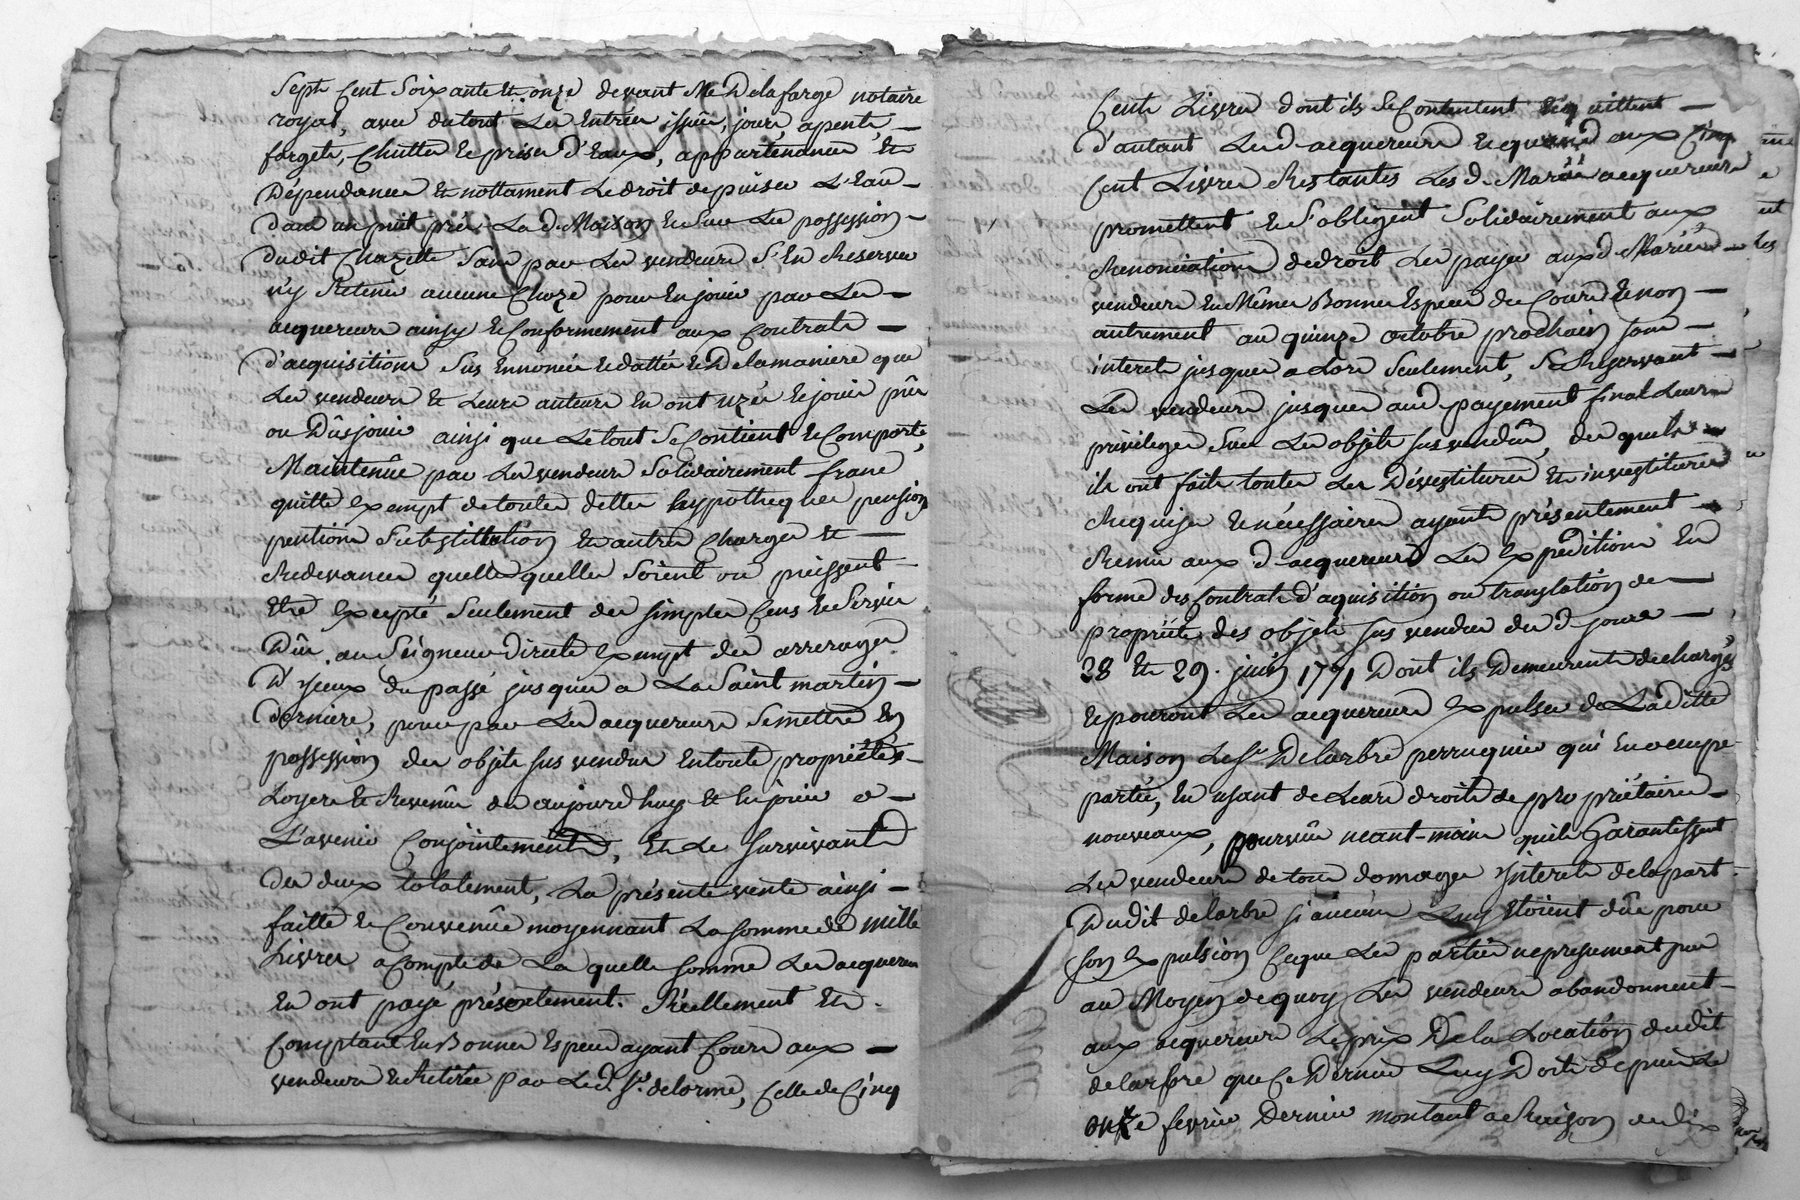 Sept Cent Soixante et onze devant Me Delafarge notaire
royal, avec dutout Les Entrées issües, jours, apents,
forgets, Chuttes et prises d'Eaux, appartenances et
Dépendances et nottament Le droit de puiser L'Eau
dans un puit près La de. Maison et Sur Les possessions
dudit Chazette Sans par Les vendeurs S'En Reserver
n'y Retenir aucune Choze pour En jouir par Les
acquereurs ainsy et Conformement aux Contrats
d'acquisitions Sus Ennoncés et dattés et De la maniere que
Les vendeurs et Leurs auteurs En ont uzés et jouir pûs
ou Dûs jouir ainsi que Le tout Se Contient et Comporte,
Maintenûe par Les vendeurs Solidairement franc
quitte Exempt de toutes dettes hypotheques pension
pentions Substitution et autres Charges et
Redevances quelles quelles Soient ou puissent
Etre Excepté Seulement des simples Cens et Servis
Dûs au Seigneur Directe Exempt des arrerages
D'Yceux du passé jusques a La Saint martin
dernière, pour par Les acquereurs Se mettre En
possession des objets sus vendus En toute propriétés
Loyers et Revenûs dez aujourd'huy et En jouir a
L'avenir Conjointement, Et Le survivant
des deux totalement, La présente vente ainsi
faitte et Convenûe moyennant La somme de mille
Livres a Compte de La quelle somme Les acquereurs
En ont payé présentement. Réellement et
Comptant En Bonnes Espèces ayant Cours aux
vendeurs et Retirée par Le d. Sr. delorme, Celle de Cinq
Cents Livres dont ils Se Contentent En quittent
d'autant Les d. acquereurs et quand aux Cinq
Cent Livres Restantes Les d. Mariés acquereurs
promettent et S'obligent Solidairement aux
Renonciations de droit Les payer aux d. Mariés
vendeurs En Mêmes Bonnes Especes de Cours et non
autrement au quinze octobre prochain sans
interets jusques a Lors Seulement, Se Reservant
Les vendeurs jusques aud. payement final Leurs
privileges Sur Les objets sus vendûs, des quels
ils ont faits toutes Les Dévestitures et investitures
Requises et nécessaires ayants présentement
Remis aux d. acquereurs Les Expeditions En
forme des Contrats d'aquisition ou translation de
propriété des objets sus vendus des d. jours
28 et 29. juin 1771 Dont ils Demeurent decharges
et pouront Les acquereurs Expulser de La Ditte
Maison Le Sr. Delarbre perruquier qui En occupe
partie, En usant de Leurs droits de propriétaires
nouveaux, pourvûe neant-moins quils Garantissent
Les vendeurs de tous domages Interets de la part
Dudit delarbre si aucuns Luy Etoient dûs pour
son Expulsion Ceque Les parties
au Moyen de quoy Les vendeurs abandonnent
aux acquereurs Le prix De La Location dudit
delarbre que Ce Dernier Luy Doit depuis Le
onze fevrier Dernier montant a Raison de dix